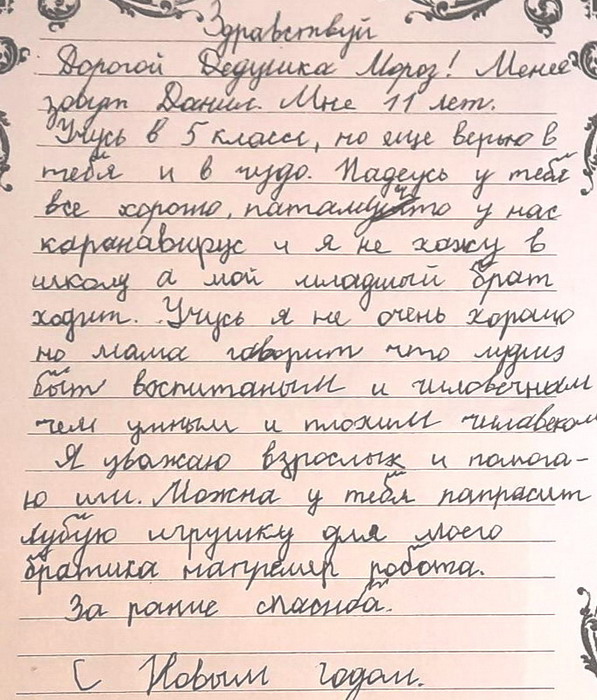 Здравствуй
Дорогой Дедушка Мороз! Меня
зовут Данил. Мне 11 лет.
Учусь в 5 класси, но еще верью в
тебя и в чудо. Надеусь у тебя
все хорошо, патамучто у нас
каранавирус и я не хажу в
школу а мой младшый брат
ходит. Учусь я не очень хорашо
но мама говорит что лудше
быт воспитаным и чиловечным
чем умным и плохим чилавеком
Я уважаю взрослых и помога-
ю им. Можна у тебя папрасит
лубую игрушку для моего
братика напремер робота.
За рание спасиба.
С Новым годом.